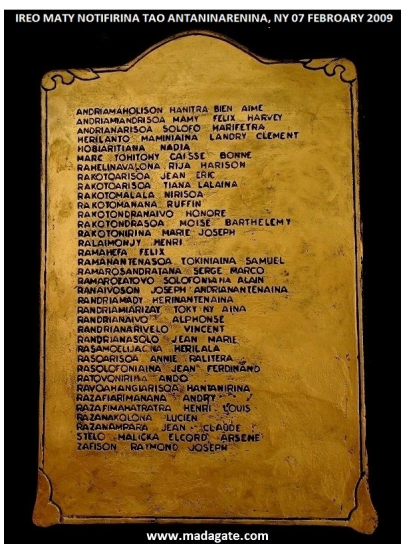 IREO MATY NOTIFIRINA TAO ANTANINARENINA, NY 07 FEBROARY 2009
ANDRIAMAHOLISON HANITRA BIEN AIME
ANDRIAMIANDRISOA MAMY FELIX HARVEY
ANDRIANARISOA SOLOFO HARIFETRA
HERILANTO MAMINIAINA LANDRY CLEMENT
HOBIARITIANA NADIA
MARC TOHITOHY CAISSE BONNE
RAHELINAVALONA RIJA HARISON
RAKOTOARISOA JEAN ERIC
RAKOTOARISOA TIANA LALAINA
RAKOTOMALALA NIRISOA
RAKOTOMANANA RUFFIN
RAKOTONDRANAIVO HONORE
RAKOTONDRASOA MOISE BARTHELEMY
RAKOTONIRINA MARIE JOSEPH
RALAIMONJY HENRI
RAMAHEFA FELIX
RAMANANTENASOA TOKINIAINA SAMUEL
RAMAROSANDRATANA SERGE MARCO
RAMAROZATOVO SOLOFONIAINA ALAIN
RANAIVOSON JOSEPH ANDRIANANTENAINA
RANDRIAMADY HERINANTENAINA
RANDRIAMIARIZAY TOKY NY AINA
RANDRIANAIVO ALPHONSE
RANDRIANARIVELO VINCENT
RANDRIANASOLO JEAN MARIE
RASAMOELIJAONA HERILALA
RASOARISOA ANNIE RALITERA
RASOLOFONIAINA JEAN FERDINAND
RATOVONIRINA ANDO
RAVOAHANGIARISOA HANTANIRINA
RAZAFIARIMANANA ANDRY
RAZAFIMAHATRATRA HENRI LOUIS
RAZANAKOLONA LUCIEN
RAZANAMPARA JEAN CLAUDE
STELO MALICKA ELCORD ARSENE
ZAFISON RAYMOND JOSEPH
www.madagate.com